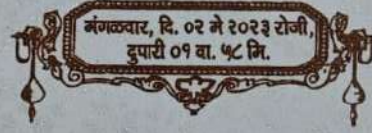 मंगळवार, दि. ०२ मे २०२३ रोजी,
दुपारी ०१ वा. ५८ मि.